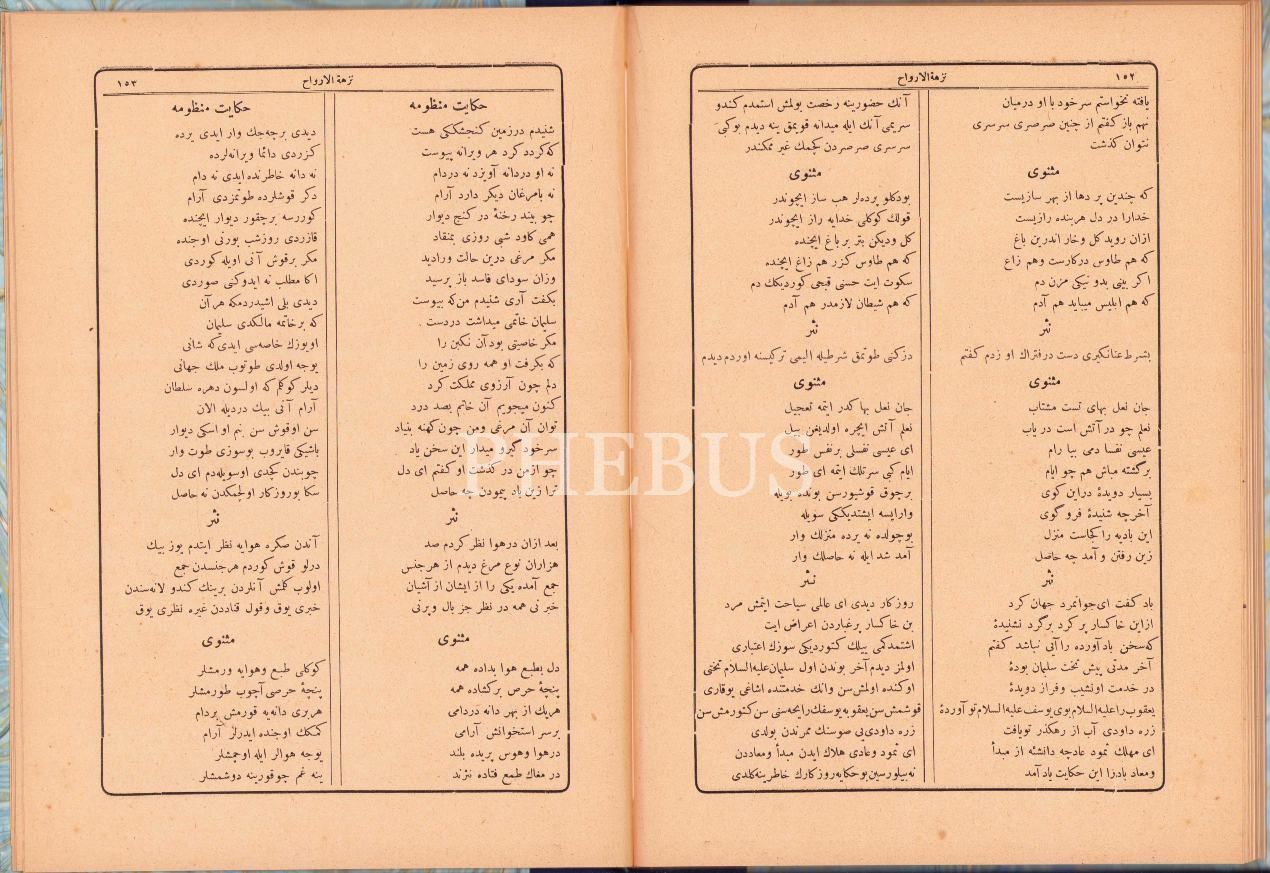 ١٥٢
نزهة الارواح
يافته نخواستم سرخود با او درميان
نهم باز كفتم از چنين صرصرى سرسرى
نتوان كذشت
مثنوى
كه چندين پردها از بهر سازيست
خدارا در دل هربنده رازيست
ازان رويد كل وخار اندرين باغ
كه هم طاوس دركارست وهم زاغ
اكر بينى بدو نيكى مزن دم
كه هم ابليس ميبايد هم آدم
نثر
بشرط عنانكيرى دست درفتراك او زدم كفتم
مثنوى
جان نعل بهاى تست مشتاب
نعلم چو در آتش است در ياب
عيسى نفسا دمى بيا رام
بركشته مباش هم چو ايام
بسيار دويدۀ دراين كوى
آخرچه شنيدۀ فرو كوى
اين باديه را كجاست منزل
زين رفتن و آمد چه حاصل
نثر
باد كفت اى جوانمرد جهان كرد
ازاين خاكسار پر كرد بركرد نشنيدۀ
كه سخن باد آورده را آبى نباشد كفتم
آخر مدتى پيش تخت سليمان بودۀ
در خدمت او نشيب وفراز دويدۀ
يعقوب را عليه السلام بوى يوسف عليه السلام تو آوردۀ
زره داودى آب از رهكذر تو يافت
اى مهلك ثمود عاد چه دانشئه از مبدأ
ومعاد باد را اين حكايت ياد آمد
آنك حضورينه رخصت بولمش استمدم كندو
سريمى آنك ايله ميدانه قويمق ينه ديدم بوكبى
سرسرى صرصردن كچمك غير ممكندر
مثنوى
بودكلو پرده لر هب ساز ايچوندر
قولك كوكلى خدايه راز ايچوندر
كل وديكن بتر بر باغ ايچنده
كه هم طاوس كزر هم زاغ ايچنده
سكوت ايت حسنى قبحى كورديكك دم
كه هم شيطان لازمدر هم آدم
نثر
دزكنى طوتمق شرطيله اليمى تركيسنه اوردم ديدم
مثنوى
جان نعل بها كدر ايتمه تعجيل
نعلم آتش ايچره اولديغن بيل
اى عيسى نفسلى برنفس طور
ايام كبى سرتلك ايتمه اى طور
برچوق قوشيورسن بونده بويله
وارايسه ايشتديككى سويله
بوچولده نه يرده منزلك وار
آمد شد ايله نه حاصلك وار
نثر
روزكار ديدى اى عالمى سياحت ايتمش مرد
بن خاكسار پرغباردن اعراض ايت
اشتمدكمى بيلك كتورديكى سوزك اعتبارى
اولمز ديدم آخر بوندن اول سليمان عليه السلام تختى
اوكنده اولمش سن وانك خدمتنده اشاغى يوقارى
قوشمش سن يعقوبه يوسفك رايحه سنى سن كتورمش سن
زره داودى بى صوسنك ممرندن بولدى
اى ثمود وعادى هلاك ايدن مبدأ ومعاددن
نه بيلورسين بو حكايه روزكارك خاطرينه كلدى
نزهة الارواح
١٥٣
حكايت منظومه
شنيدم درزمين كنجشككى هست
كه كردد كرد هر ويرانه پيوست
نه او دردانه آويزد نه دردام
نه بامرغان ديكر دارد آرام
چو بيند رخنۀ در كنج ديوار
همى كاود شبى روزى بمنقاد
مكر مرغى درين حالت وراديد
وزان سوداى فاسد باز پرسيد
بكفت آرى شنيدم من كه پيوست
سليمان خاتمى ميداشت دردست
مكر خاصيتى بود آن نكين را
كه بكرفت او همه روى زمين را
دلم چون آرزوى مملكت كرد
كنون ميجويم آن خاتم بصد درد
توان آن مرغى ومن چون كهنه بنياد
سرخود كيرو ميدار اين سخن ياد
چو ازمن در كذشت او كفتم اى دل
ترا زين باد پيمودن چه حاصل
نثر
بعد ازان درهوا نظر كردم صد
هزاران نوع مرغ ديدم از هرجنس
جمع آمده يكى را از ايشان از آشيان
خبر نى همه در نظر جز بال وپرنى
مثنوى
دل بطبع هوا بداده همه
پنچۀ حرص بركشاده همه
هريك از بهر دانه دردامى
برسر استخوانش آرامى
درهوا وهوس پريده بلند
در مغاك طمع فتاده نژند
حكايت منظومه
ديدى برجه جك وار ايدى يرده
كزردى دائما ويرانه لرده
نه دانه خاطرنده ايدى نه دام
دكر قوشلرده طوتمزدى آرام
كوررسه برچقور ديوار ايچنده
قازردى روزشب بورنى اوجنده
مكر برقوش آنى اويله كوردى
اكا مطلب نه ايدوكنى صوردى
ديدى بلى اشيدردمكه هر آن
كه برخاتمه مالكدى سليمان
اويوزك خاصه سى ايدى كه شانى
يوجه اولدى طوتوب ملك جهانى
ديلر كوكلم كه اولسون دهره سلطان
آرام آنى بيك درديله الان
سن اوقوش سن بنم او اسكى ديوار
باشيكى قايروب بوسوزى طوت وار
چوبندن كچدى اوسويله دم اى دل
سكا بوروزكار اولچمكدن نه حاصل
نثر
آندن صكره هوايه نظر ايتدم يوز بيك
درلو قوش كوردم هرجنسدن جمع
اولوب كلمش آنلردن برينك كندو لانه سندن
خبرى يوق وقول قناددن غيره نظرى يوق
مثنوى
كوكلى طبع وهوايه ورمشلر
پنچۀ حرصى آچوب طورمشلر
هربرى دانه يه قورمش بردام
كمكك اوجنده ايدرلر آرام
يوجه هوالر ايله اوچمشلر
ينه غم چوقورينه دوشمشلر
PHEBUS